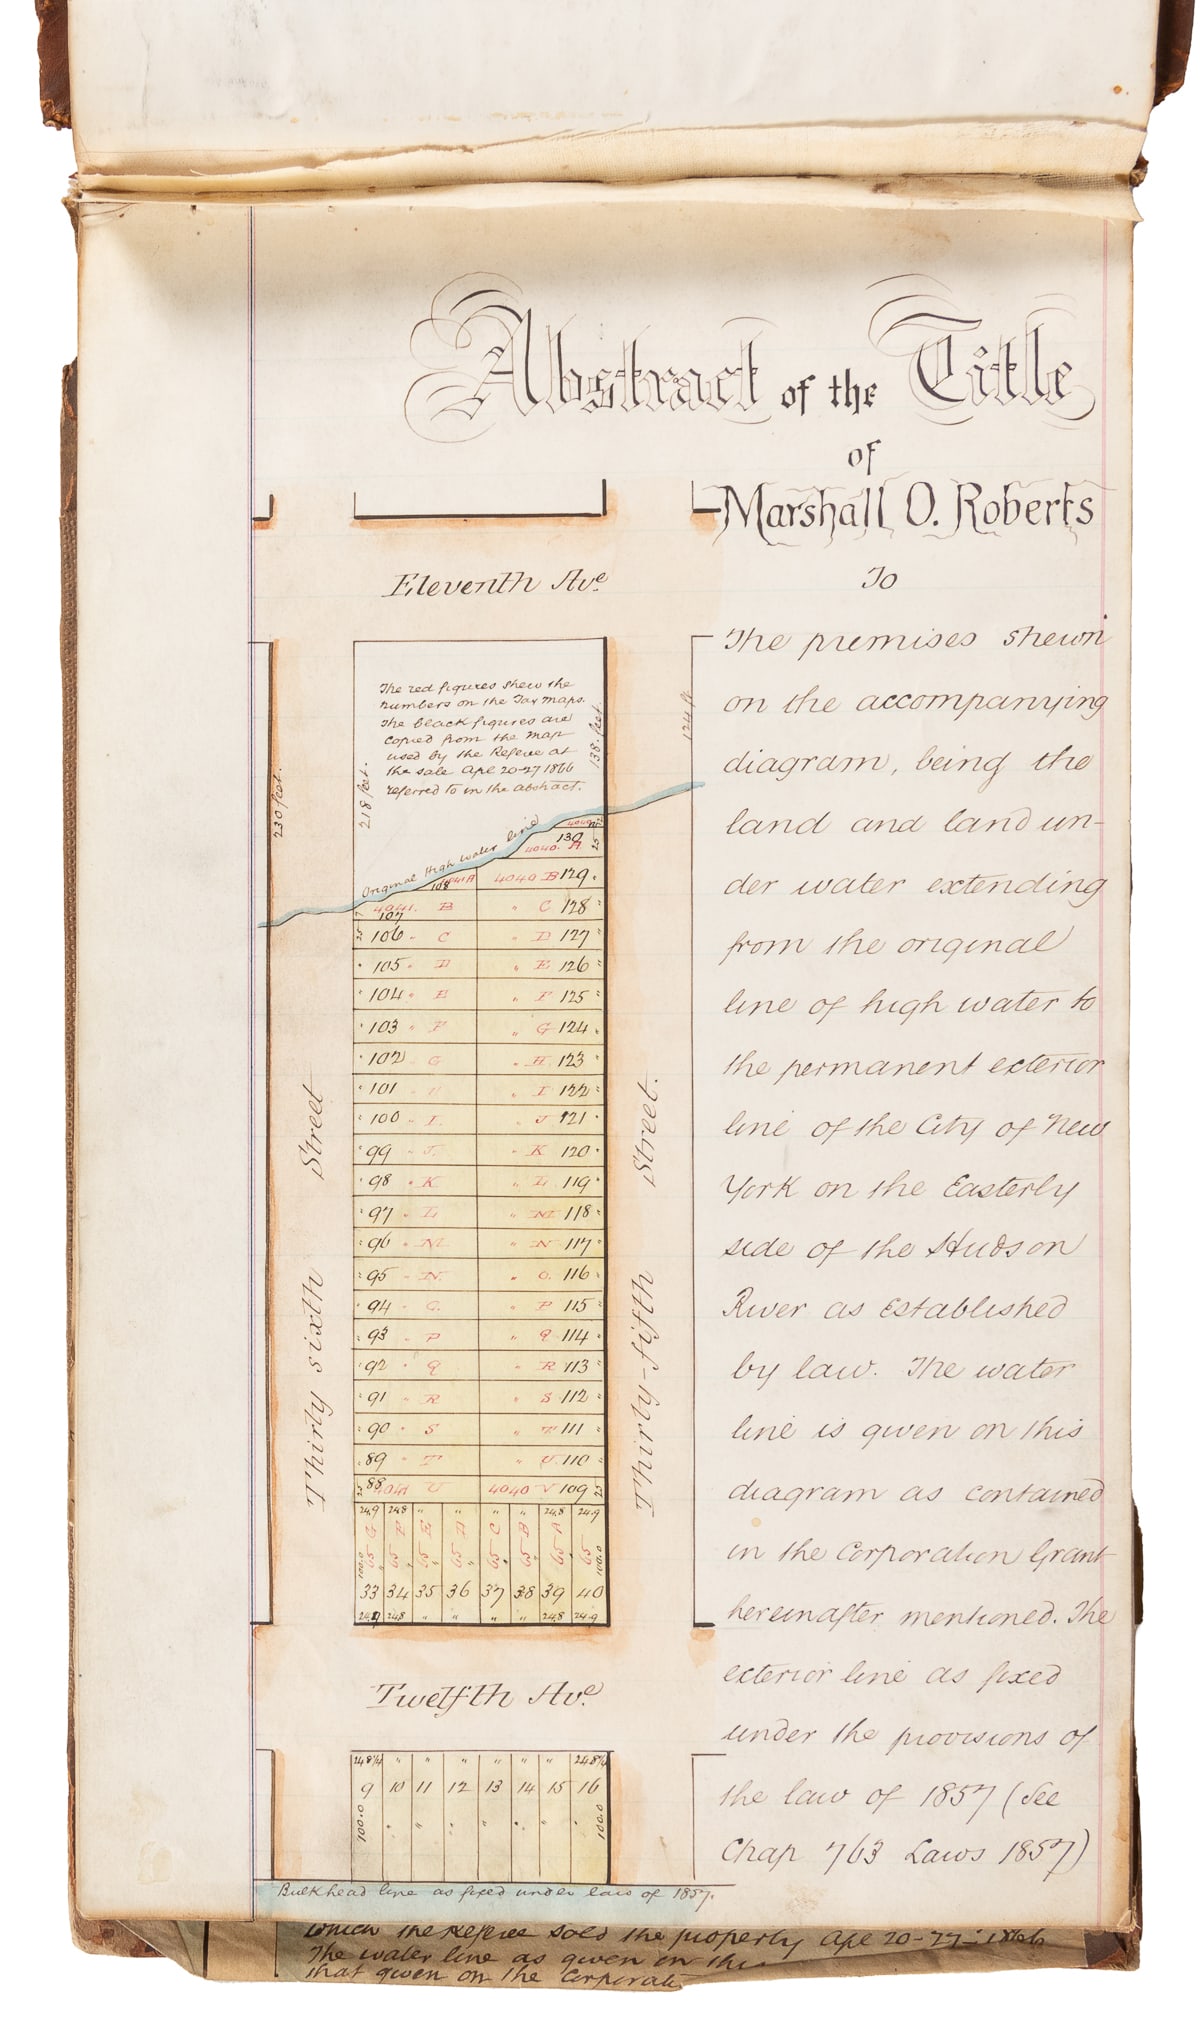 Abstract of the Title
of
Marshall O. Roberts
To
The premises shewn
on the accompanying
diagram, being the
land and land un-
der water extending
from the original
line of high water to
the permanent exterior
line of the City of New
York on the Easterly
side of the Hudson
River as established
by law. The water
line is given on this
diagram as contained
in the Corporation Grant
hereinafter mentioned. The
exterior line as fixed
under the provisions of
the law of 1857 (See
Chap 763 Laws 1857)
Eleventh Ave.
The red figures shew the
numbers on the Tax maps.
The black figures are
copied from the map
used by the Referee at
the sale Apl 20-27 1866
referred to in the Abstract.
230 feet.
218 feet.
138 feet.
124 ft
Original High water line
130
4040 A
108 4041 A 4040 B 129
4041 B " C 128
107
106 " C " D 127
105 " D " E 126
104 " E " F 125
103 " F " G 124
102 " G " H 123
101 " " I 122
100 " I " J 121
99 " J " K 120
98 " K " L 119
97 " L " M 118
96 " M " N 117
95 " N " O 116
94 " O " P 115
93 " P " Q 114
92 " Q " R 113
91 " R " S 112
90 " S " T 111
89 " T " U 110
88 4041 U 4040 V 109
24.9 24.8 " " " " 24.8 24.9
65 G 65 F 65 E 65 D 65 C 65 B 65 A 65
100.0 100.0
33 34 35 36 37 38 39 40
24.9 24.8 " " " " 24.8 24.9
Thirty sixth Street
Thirty-fifth Street.
Twelfth Ave.
24.8¼ " " " " " " 24.8¼
9 10 11 12 13 14 15 16
100.0 " " " " " " 100.0
Bulkhead line as fixed under law of 1857.
which the Referee sold the property Apl 20-27-1866
The water line as given on this
that given on the Corporati